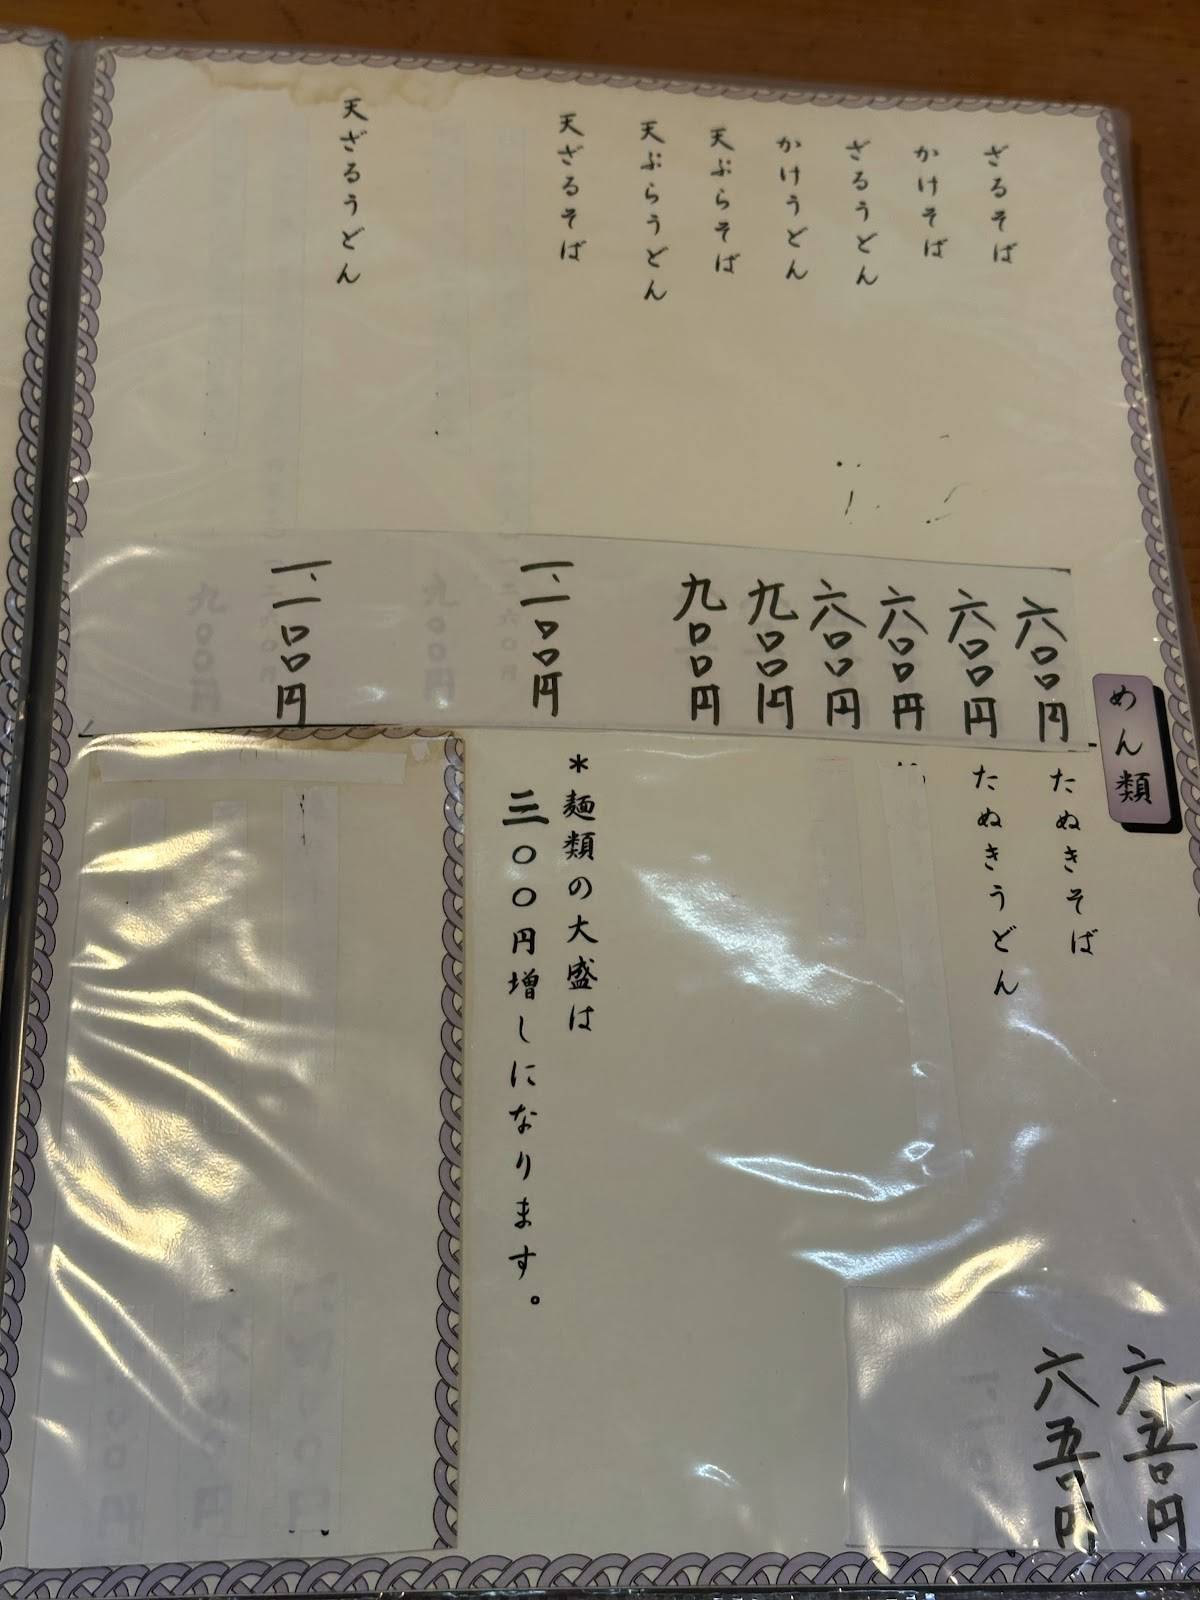 めん類
ざるそば 六〇〇円
かけそば 六〇〇円
ざるうどん 六〇〇円
かけうどん 六〇〇円
天ぷらそば 九〇〇円
天ぷらうどん 九〇〇円
天ざるそば 一、一〇〇円
天ざるうどん 一、一〇〇円
たぬきそば 六五〇円
たぬきうどん 六五〇円
*麺類の大盛は
三〇〇円増しになります。